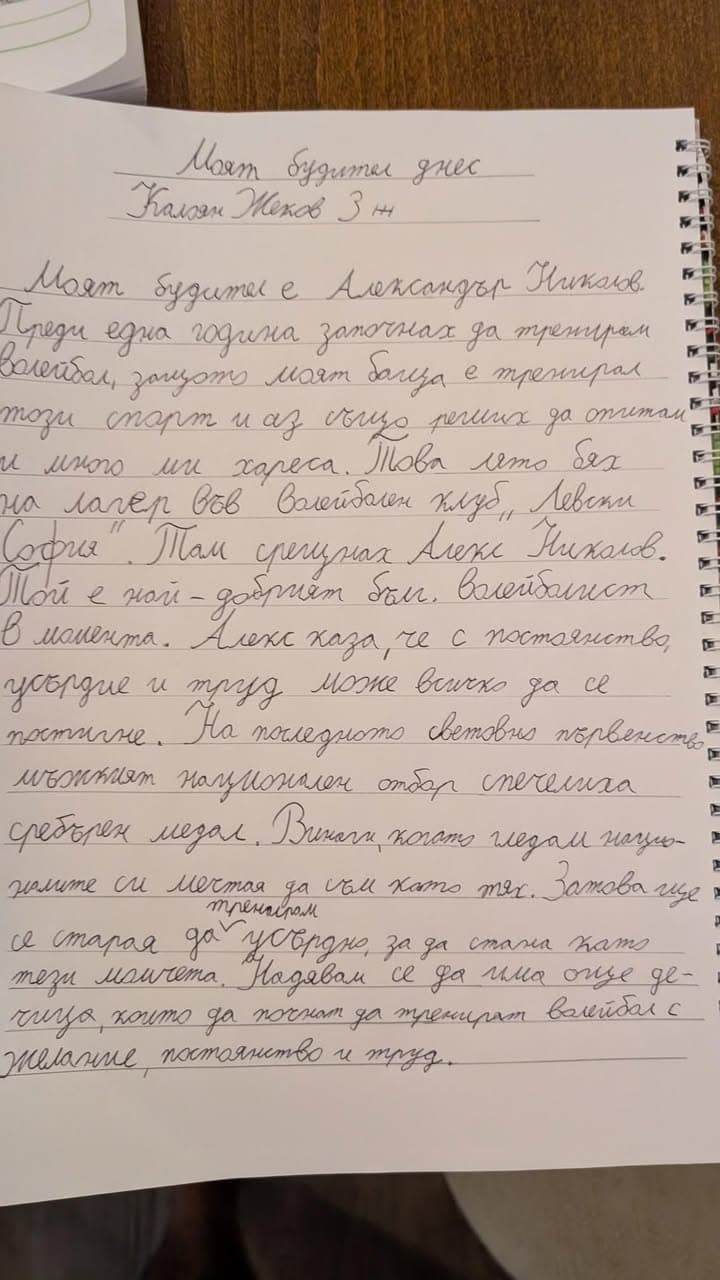 Моят будител днес
Калоян Жеков 3 ж
Моят будител е Александър Николов.
Преди една година започнах да тренирам
волейбол, защото моят баща е тренирал
този спорт и аз също реших да опитам
и много ми хареса. Това лято бях
на лагер във Волейболен клуб „Левски
София". Там срещнах Алекс Николов.
Той е най-добрият бълг. волейболист
в момента. Алекс каза, че с постоянство,
усърдие и труд може всичко да се
постигне. На последното световно първенство
мъжкият национален отбор спечелиха
сребърен медал. Винаги, когато гледам нацио-
налите си мечтая да съм като тях. Затова ще
се старая да тренирам усърдно, за да стана като
тези момчета. Надявам се да има още де-
чица, които да почнат да тренират волейбол с
желание, постоянство и труд.